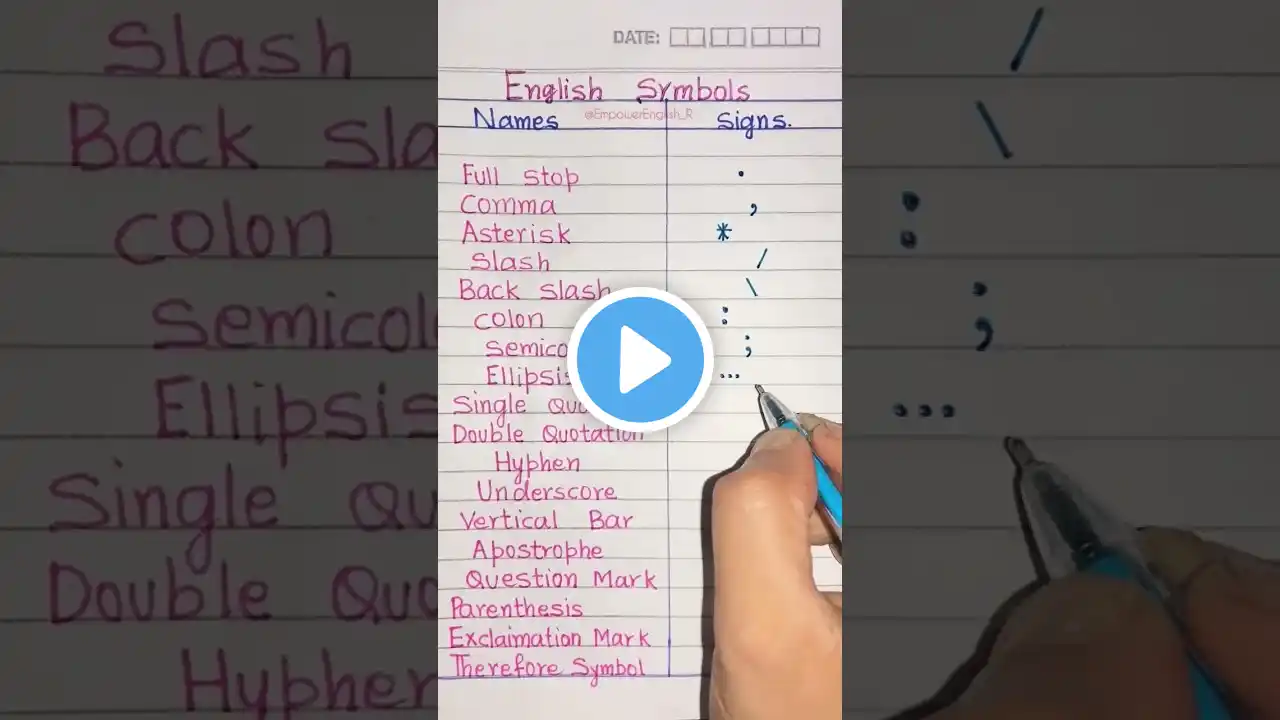 DATE:
English Symbols
Names @EmpowerEnglish_R Signs.
Full stop .
Comma ,
Asterisk *
Slash /
Back slash \
colon :
Semico ;
Ellipsis ...
Single Quo
Double Quotation
Hyphen
Underscore
Vertical Bar
Apostrophe
Question Mark
Parenthesis
Exclaimation Mark
Therefore Symbol